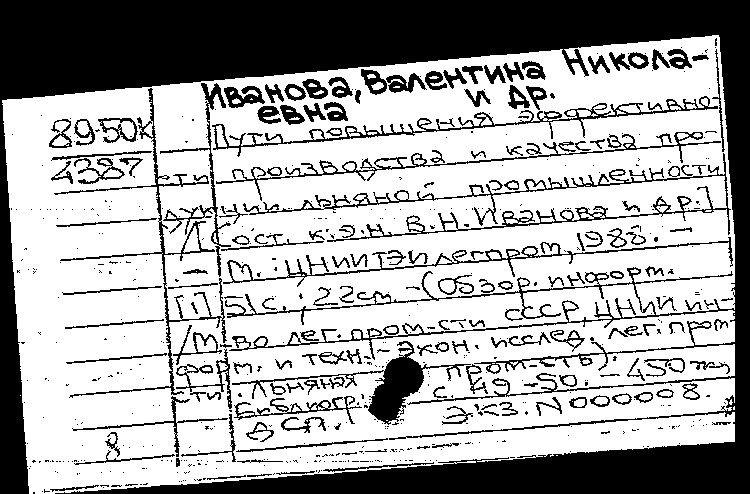 Иванова, Валентина Никола-
евна и др.
89-50к
4387
Пути повышения эффективно-
сти производства и качества про-
дукции льняной промышленности
/[Сост. к.э.н. В.Н. Иванова и др.]
.– М.: ЦНИИТЭИлегпром, 1988. –
[1], 51 с.; 22 см. – (Обзор. информ.
/М-во лег. пром-сти СССР, ЦНИИ ин-
форм. и техн.-экон. исслед. лег. пром-
сти. Льняная пром-сть).
Библиогр.: с. 49-50. – 450 экз,
ДСП. Экз. N 000008.
8